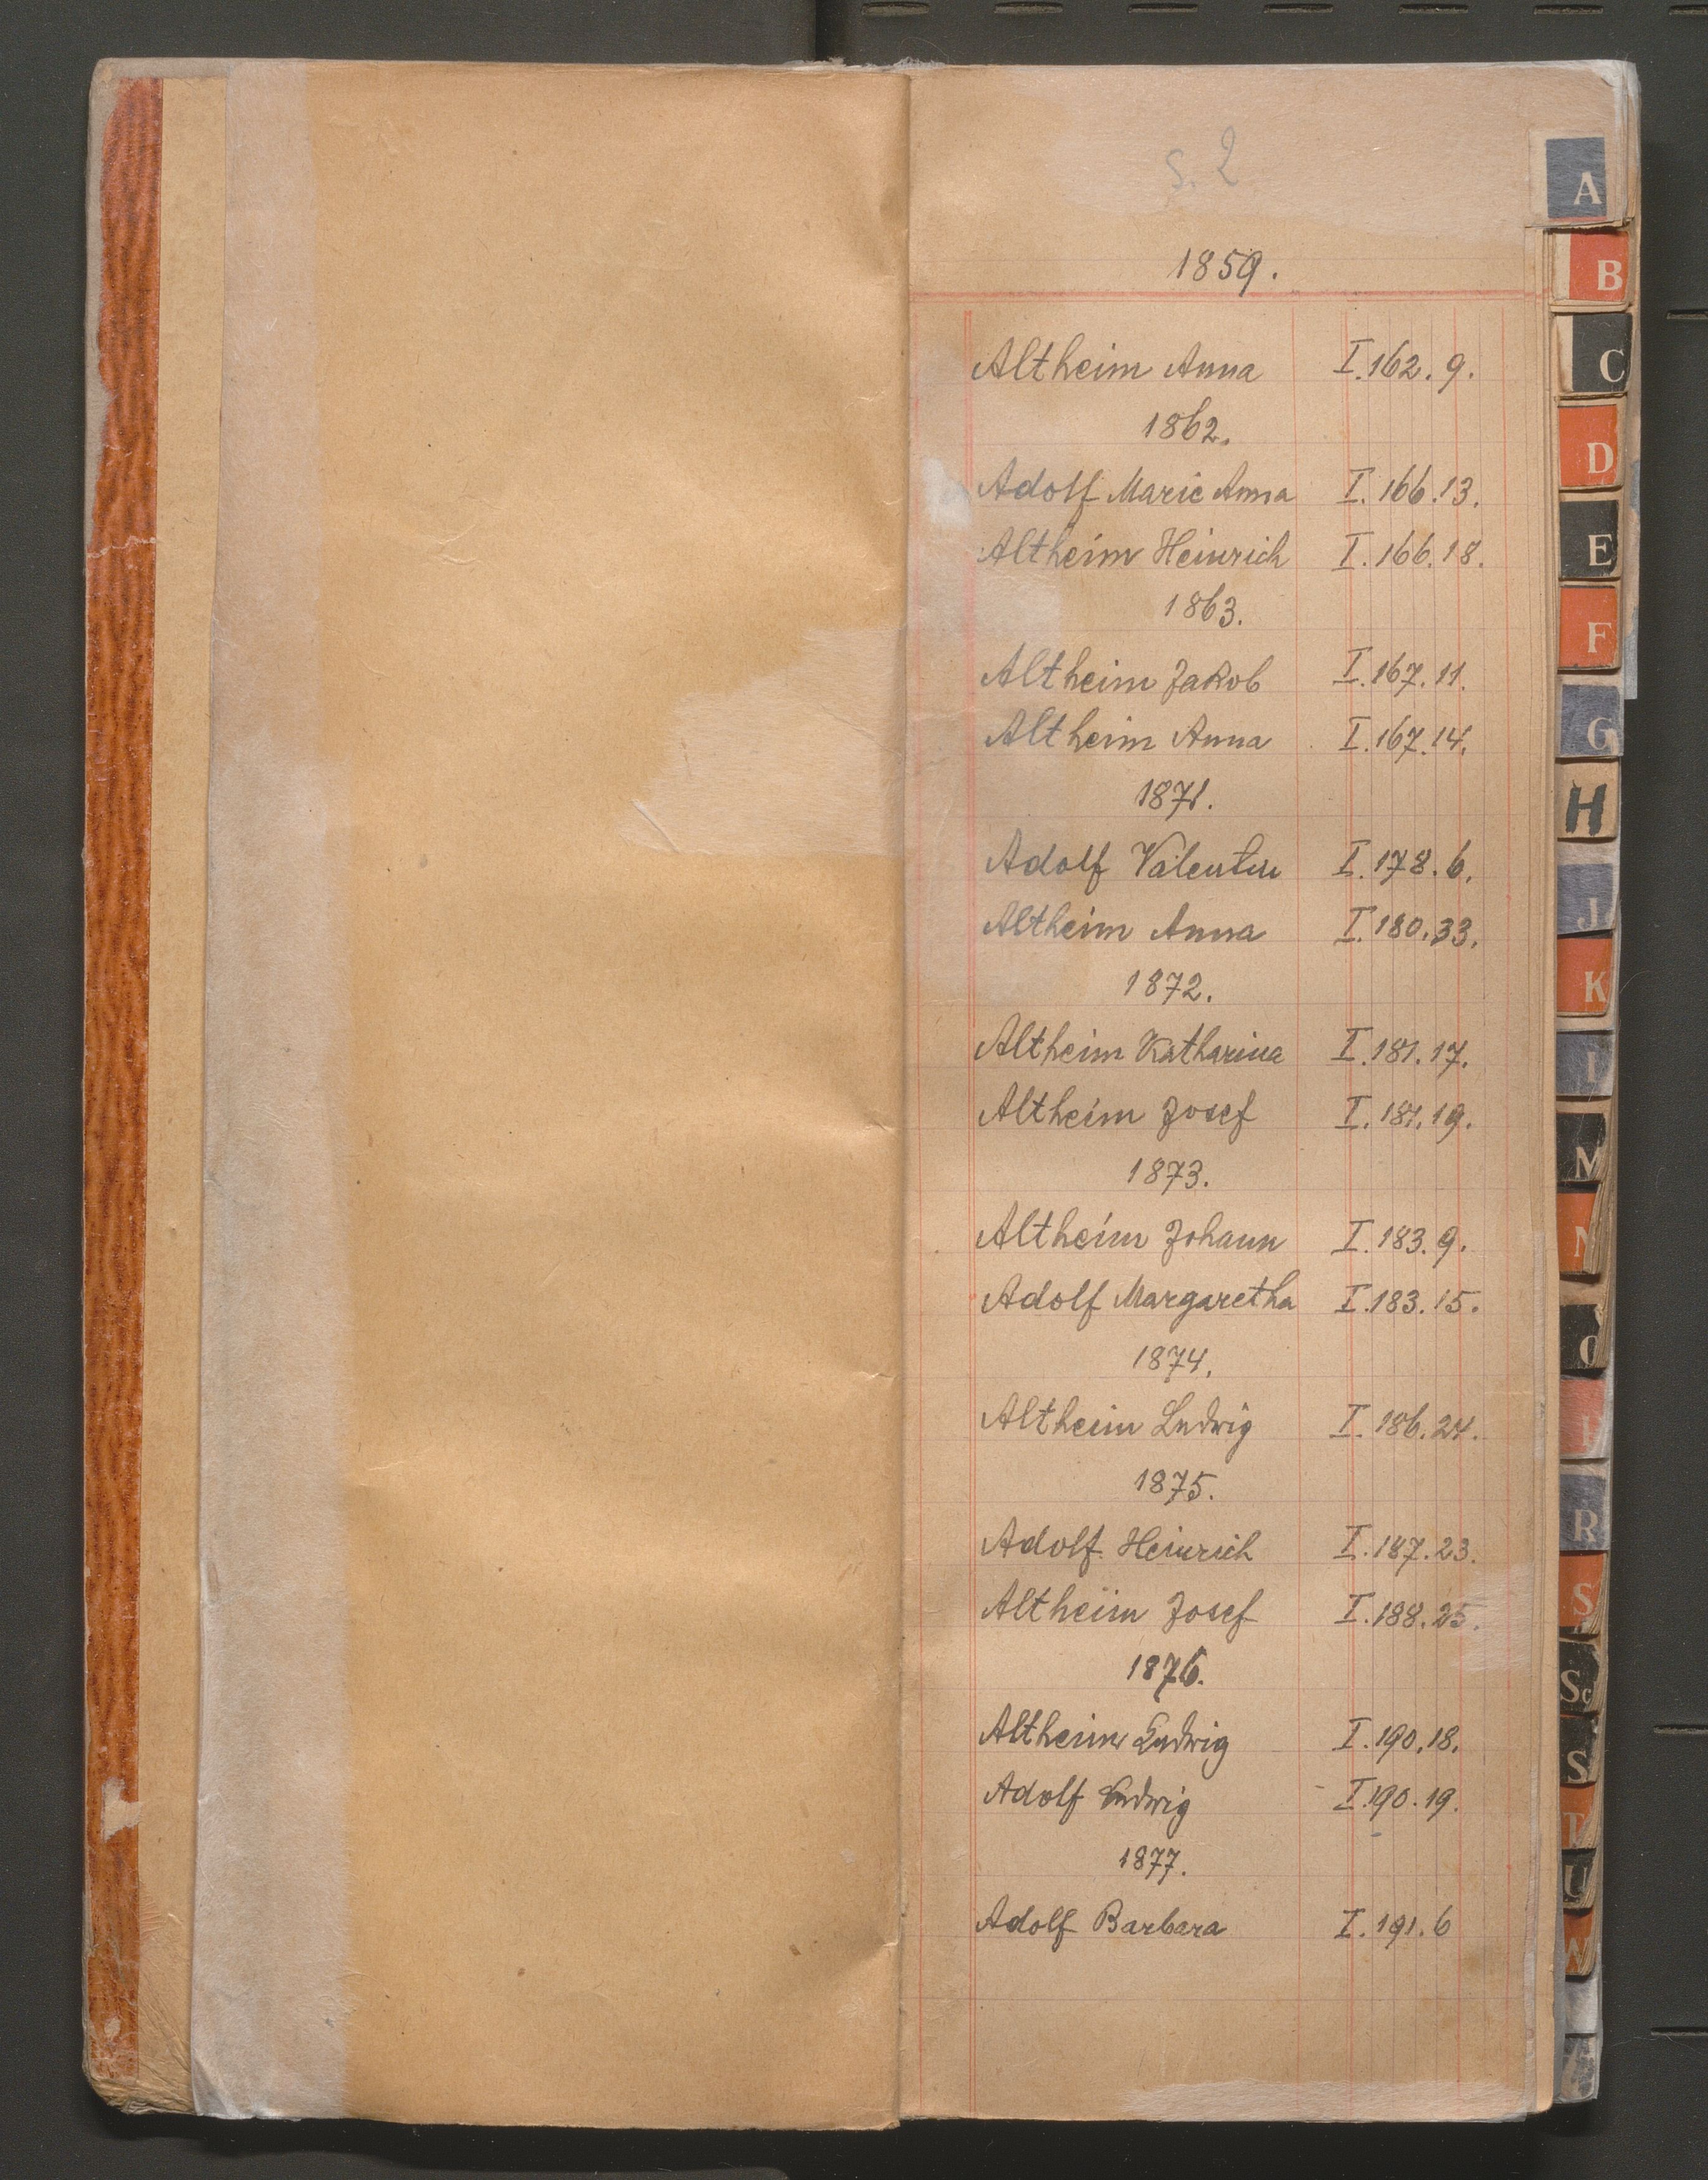 S. 2
1859.
Altheim Anna I. 162. 9.
1862.
Adolf Marie Anna I. 166. 13.
Altheim Heinrich I. 166. 18.
1863.
Altheim Jakob I. 167. 11.
Altheim Anna I. 167. 14.
1871.
Adolf Valentin I. 178. 6.
Altheim Anna I. 180. 33.
1872.
Altheim Katharina I. 181. 17.
Altheim Josef I. 181. 19.
1873.
Altheim Johann I. 183. 9.
Adolf Margaretha I. 183. 15.
1874.
Altheim Ludwig I. 186. 24.
1875.
Adolf Heinrich I. 187. 23.
Altheim Josef I. 188. 25.
1876.
Altheim Ludwig I. 190. 18.
Adolf Ludwig I. 190. 19.
1877.
Adolf Barbara I. 191. 6
A
B
C
D
E
F
G
H
J
K
M
N
O
R
S
Sc
S
T
U
W